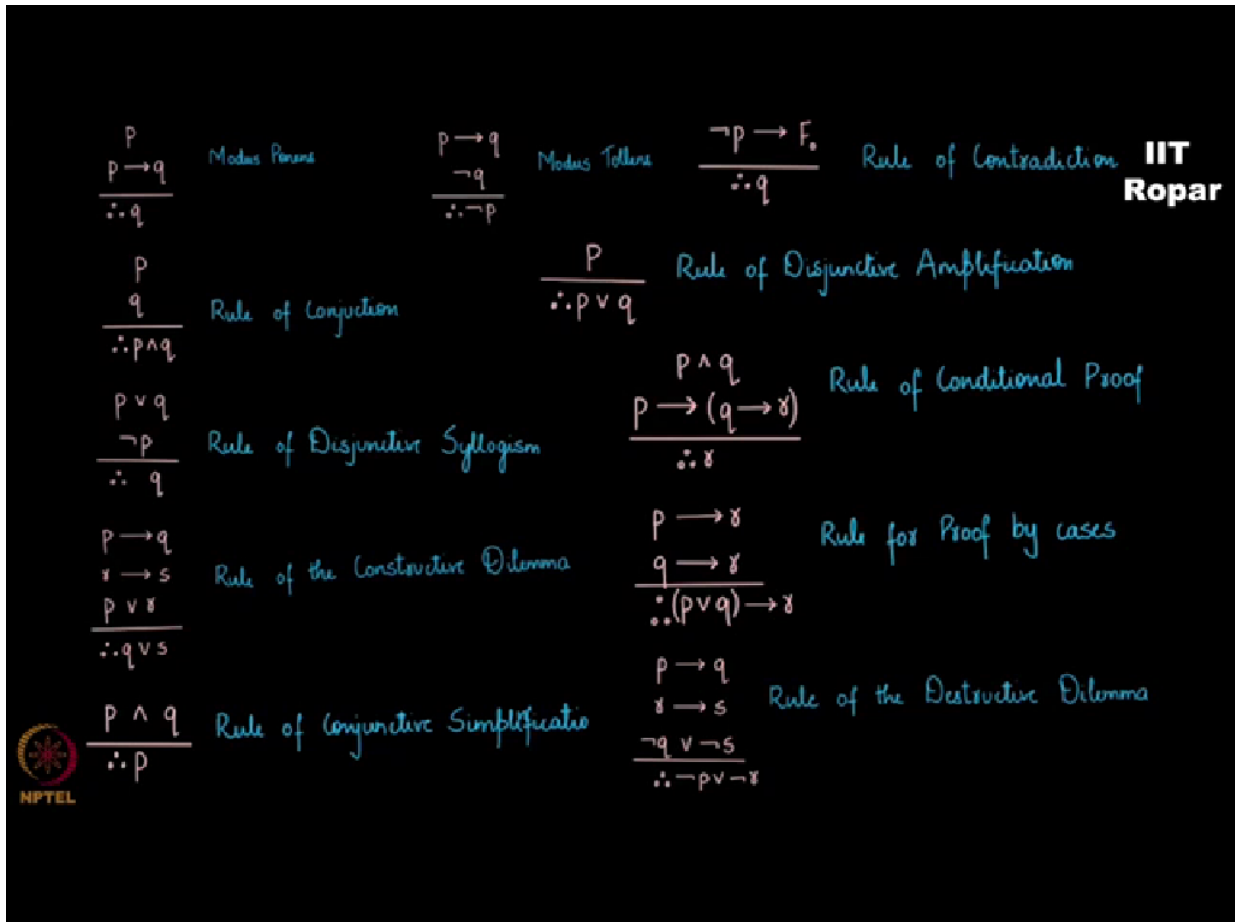 p
p → q
∴ q
Modus Ponens
p → q
¬q
∴ ¬p
Modus Tollens
¬p → F₀
∴ q
Rule of Contradiction
IIT
Ropar
p
q
∴ p ∧ q
Rule of Conjuction
p
∴ p ∨ q
Rule of Disjunctive Amplification
p ∨ q
¬p
∴ q
Rule of Disjunctive Syllogism
p ∧ q
p → (q → r)
∴ r
Rule of Conditional Proof
p → q
r → s
p ∨ r
∴ q ∨ s
Rule of the Constructive Dilemma
p → r
q → r
∴ (p ∨ q) → r
Rule for Proof by cases
p ∧ q
∴ p
Rule of Conjunctive Simplificatio
p → q
r → s
¬q ∨ ¬s
∴ ¬p ∨ ¬r
Rule of the Destructive Dilemma
NPTEL